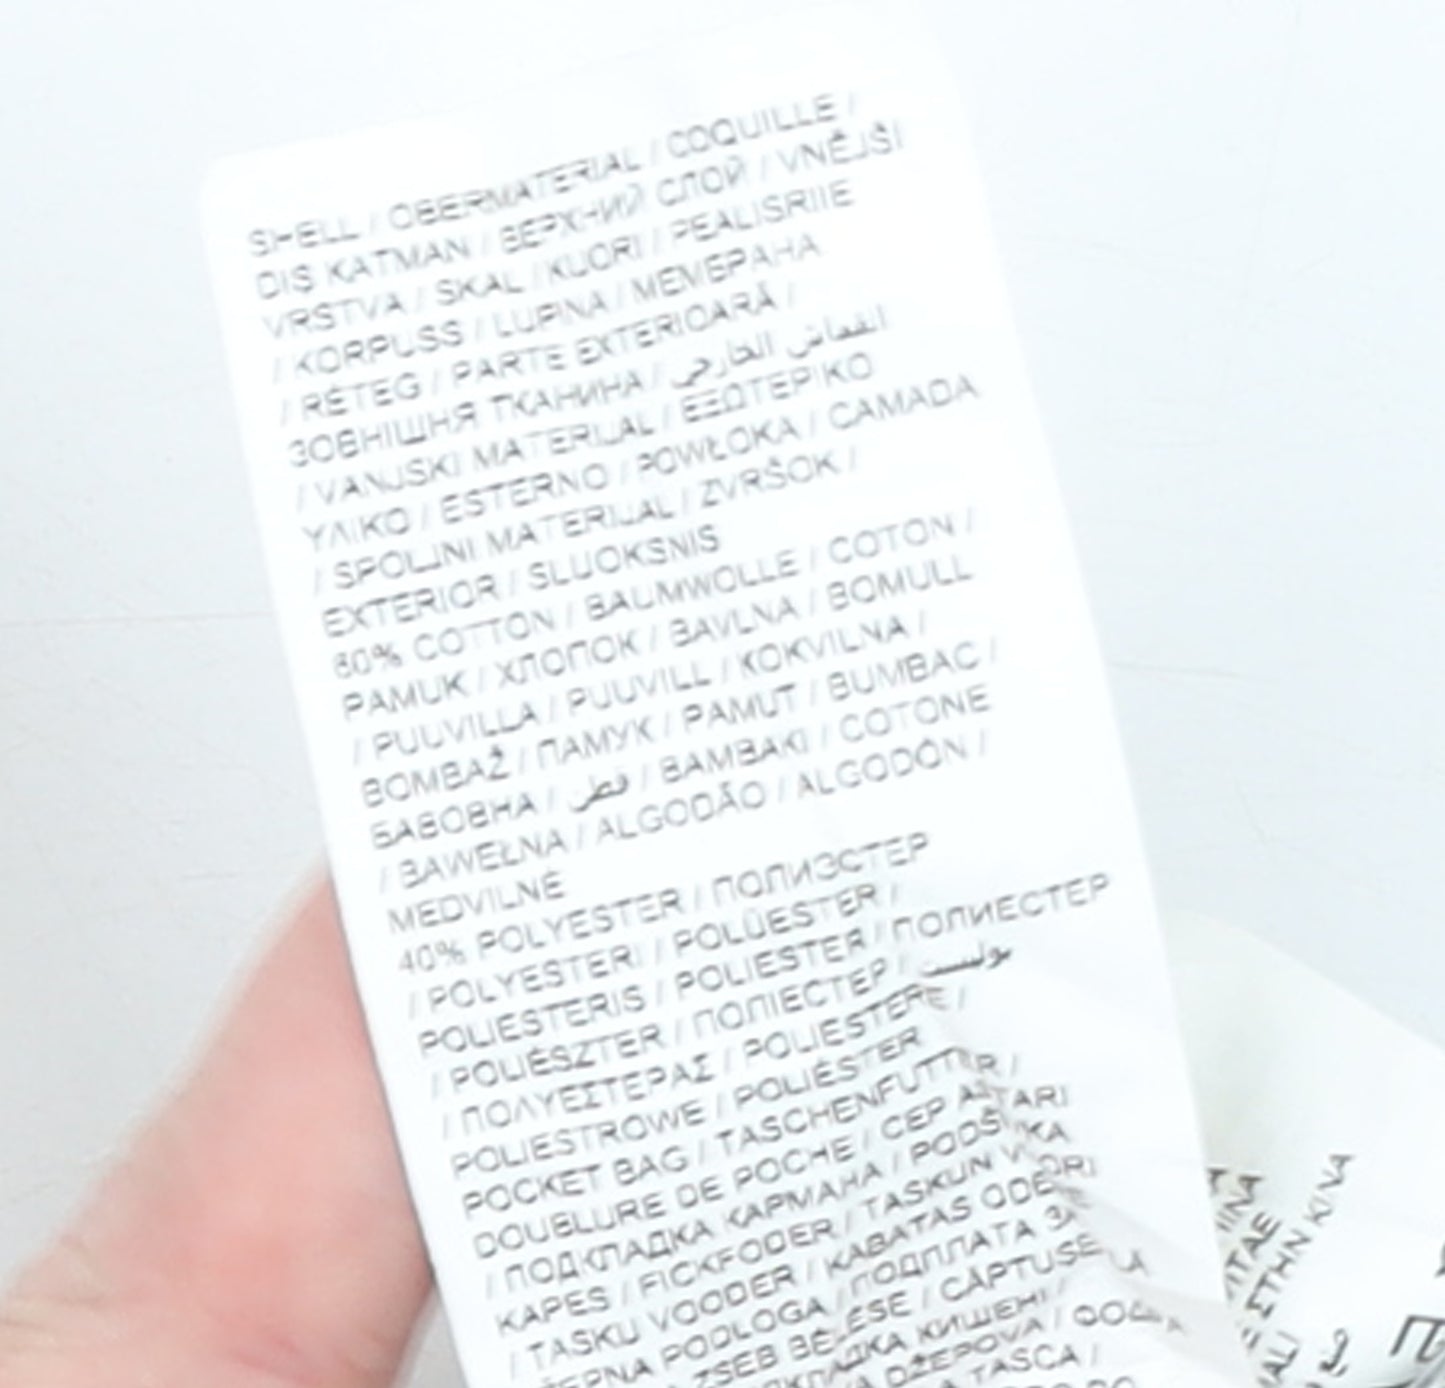 SHELL / OBERMATERIAL / COQUILLE /
DIŞ KATMAN / ВЕРХНИЙ СЛОЙ / VNĚJŠÍ
VRSTVA / SKAL / KUORI / PEALISRIIE
/ KORPUSS / LUPINA / МЕМБРАНА
/ RÉTEG / PARTE EXTERIOARĂ /
ЗОВНІШНЯ ТКАНИНА / القماش الخارجي
/ VANJSKI MATERIJAL / ΕΞΩΤΕΡΙΚΟ
ΥΛΙΚΟ / ESTERNO / POWŁOKA / CAMADA
/ SPOLJNI MATERIJAL / ZVRŠOK /
EXTERIOR / SLUOKSNIS
60% COTTON / BAUMWOLLE / COTON /
PAMUK / ХЛОПОК / BAVLNA / BOMULL
/ PUUVILLA / PUUVILL / KOKVILNA /
BOMBAŽ / ПАМУК / PAMUT / BUMBAC /
БАВОВНА / قطن / BAMBAKI / COTONE
/ BAWEŁNA / ALGODÃO / ALGODÓN /
MEDVILNĖ
40% POLYESTER / ПОЛИЭСТЕР
/ POLYESTERI / POLÜESTER /
POLIESTERIS / POLIESTER / ПОЛИЕСТЕР
/ POLIÉSZTER / ПОЛІЕСТЕР / بوليستر
/ ΠΟΛΥΕΣΤΕΡΑΣ / POLIESTERE /
POLIESTROWE / POLIÉSTER
POCKET BAG / TASCHENFUTTER /
DOUBLURE DE POCHE / CEP ASTARI
/ ПОДКЛАДКА КАРМАНА / PODŠÍVKA
KAPES / FICKFODER / TASKUN VUORI
/ TASKU VOODER / KABATAS ODERE
PODLOGA / ПОДПЛАТА ЗА
ZSEB BÉLÉSE / CĂPTUȘEALA
КИШЕНІ /
DŽEPOVA / ΦΟΔΡΑ
TASCA /
ΣΤΗΝ ΚΙΝΑ